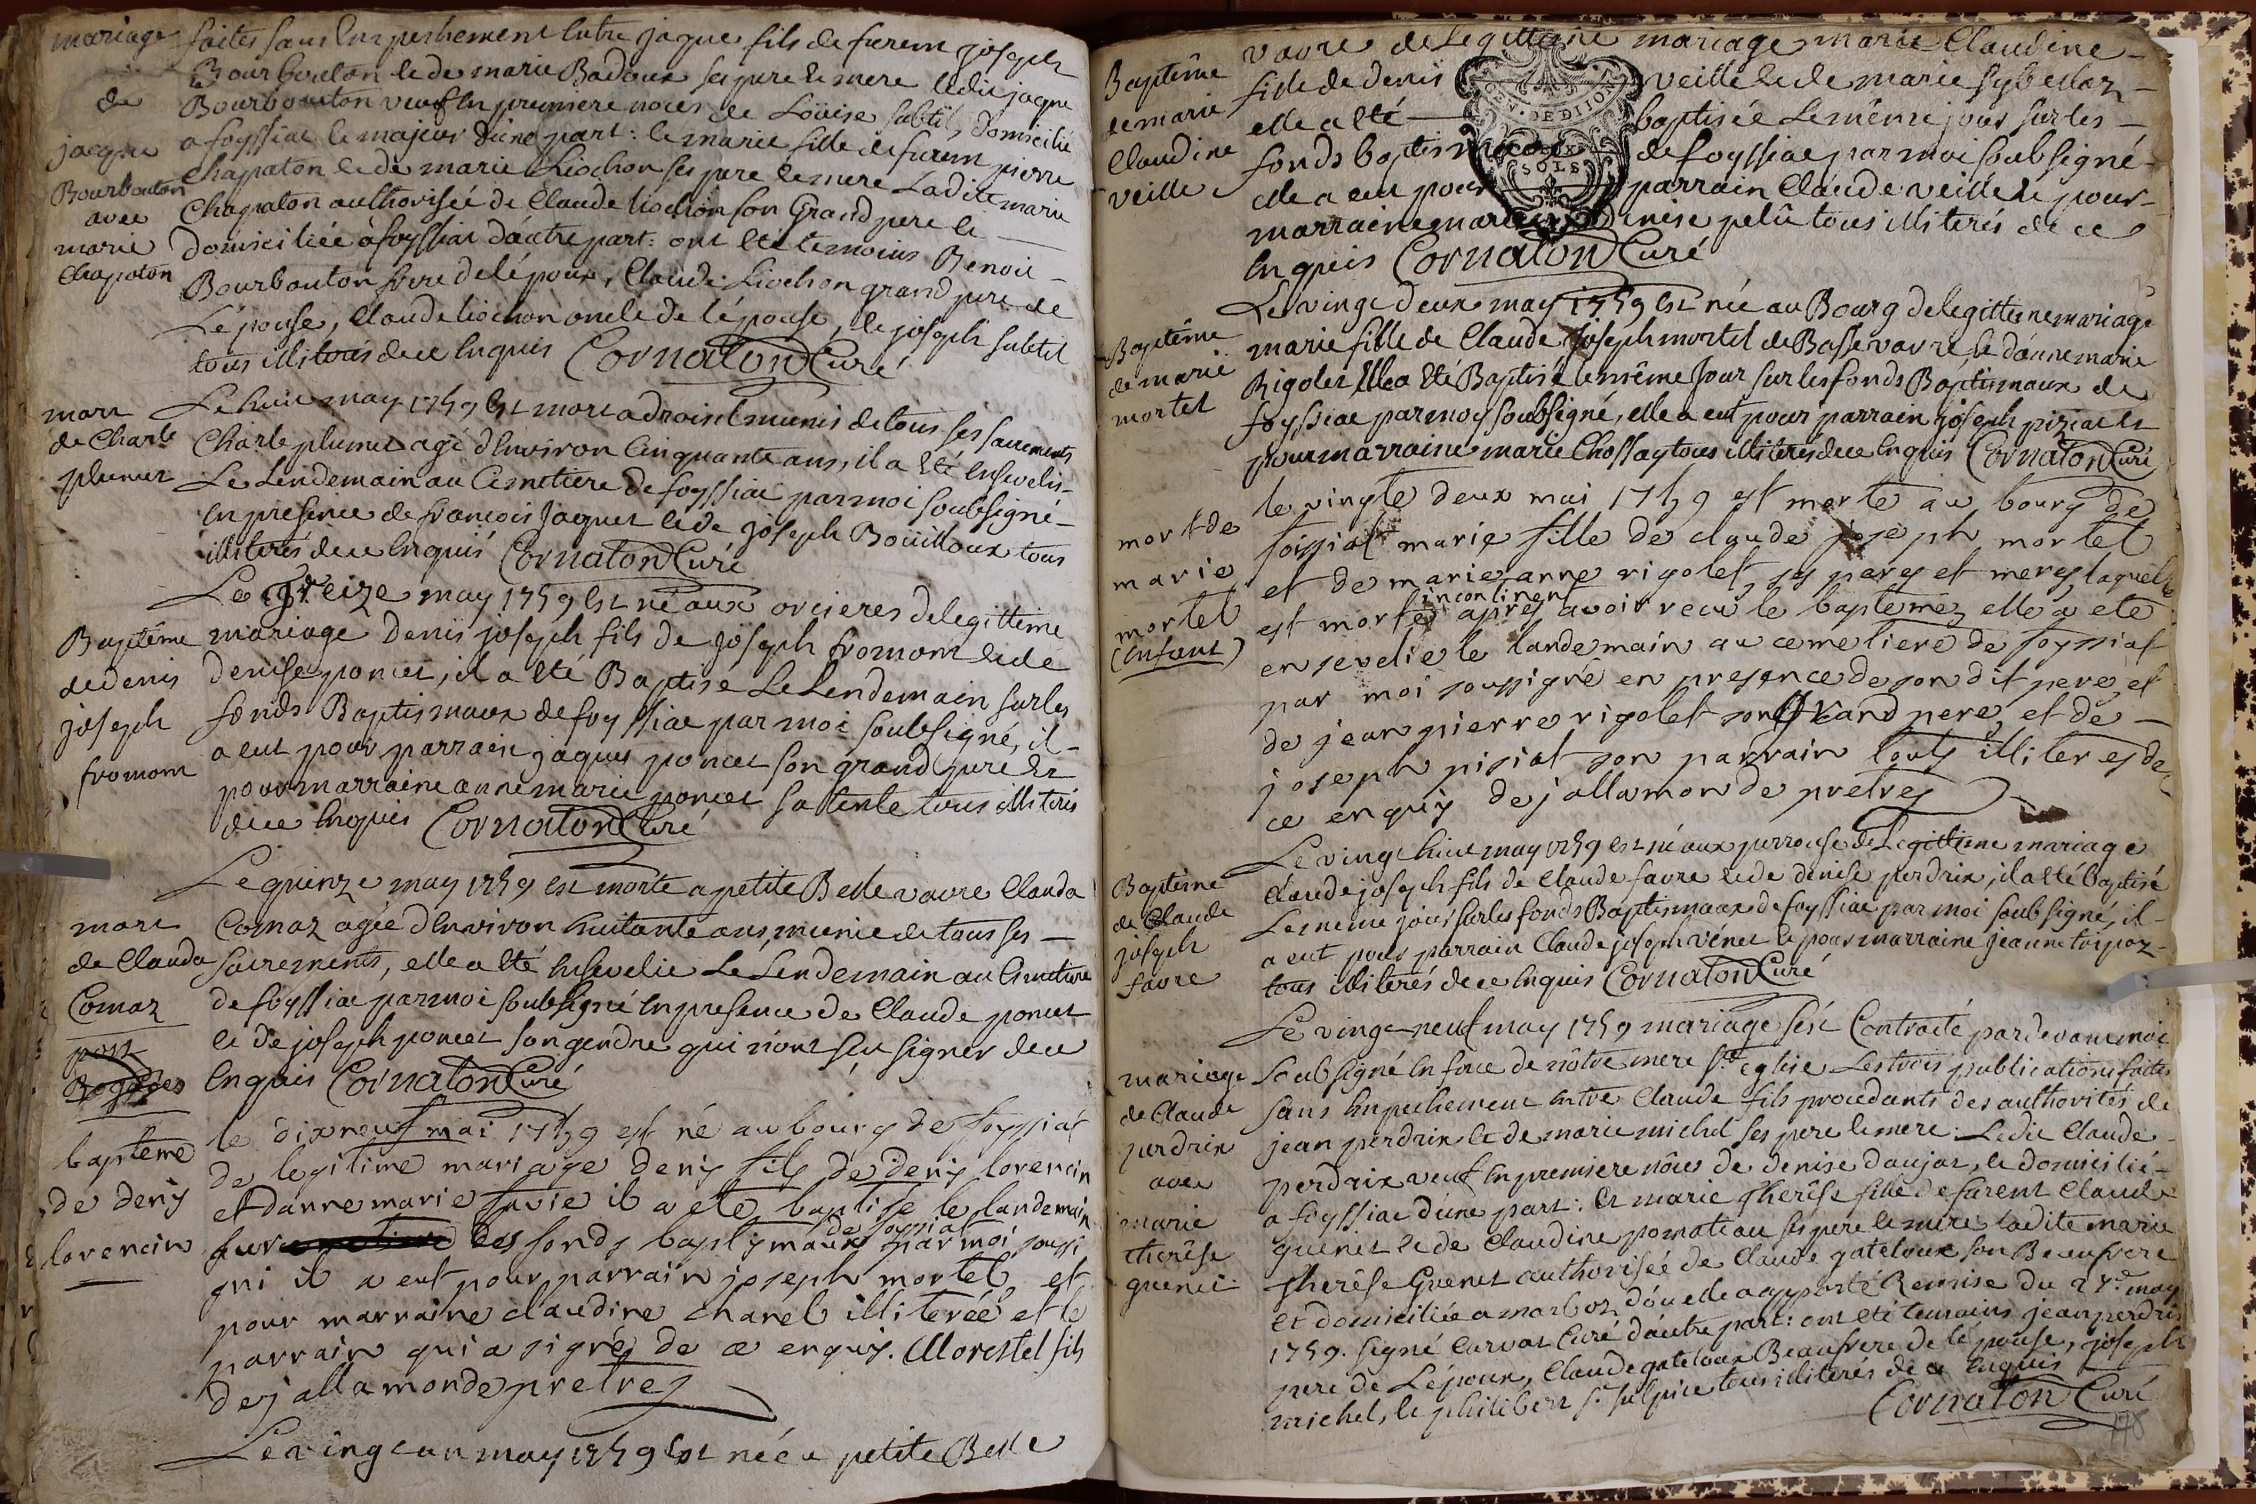 mariage
de
jacque
Bourbouton
avec
marie
Chapaton
faites sans Empechement Entre jaque fils de furent joseph
Bourbouton et de marie Badoux ses pere et mere ledit jaque
Bourbouton veuf En premiere noces de Loüise subtil, domicilié
a foyssiac le majeur d'une part: et marie fille de furent pierre
Chapaton et de marie Liochon ses pere et mere Ladite marie
Chapaton authorisée de Claude liochon son Grand pere et
domiciliée à foyssiac d'autre part: ont Eté temoins Benoit
Bourbouton frere de lépoux, Claude Liochon grand pere de
Lépouse, Claude liochon oncle de lépouse, et joseph subtil
tous illiterés de ce Enquis Cornaton Curé
mort
de Charle
plumet
Le huit may 1759 Est mort a droisel munis de tous ses sacrements
Charle plumet agé d'Environ Cinquante ans, il a Eté Ensevelis
Le Lendemain au Cimetiere de foyssiac par moi soubsigné
En presence de françois Jaquet et de joseph Boüilloux tous
illiterés de ce Enquis Cornaton Curé
Baptême
de denis
joseph
fromont
Le treize may 1759 Est né aux orcieres de legittime
mariage Denis joseph fils de joseph fromont et de
denise poncet, il a Eté Baptisé Le Lendemain sur les
fonds Baptismaux de foyssiac par moi soubsigné, il
a eut pour parrain jaques poncet son grand pere Et
pour marraine anne marie poncet sa tente tous illiterés
de ce Enquis Cornaton Curé
mort
de Clauda
Comaz
Le quinze may 1759 est morte a petite Belle vavre Clauda
Comaz agée d'Environ huitante ans, munie de tous ses
sacrements, elle a Eté Ensevelie Le Lendemain au Cimetiere
de foyssiac par moi soubsigné En presence de Claude poncet
et de joseph poncet son gendre qui n'ont sçu signer de ce
Enquis Cornaton Curé
baptême
de denis
lorencin
le dixneuf mai 1759 est né au bourg de foyssiat
de legitime mariage denis fils de denis lorencin
et danne marie favre il a eté baptise le landemain
sur les fonds baptismaux de foyssiat par moi soussi
gni il a eut pour parrain joseph mortel, et
pour marraine claudine charel illiterée et le
parrain qui a signé de ce enquis. Morestel fils
dejallamonde pretre
Le vingt un may 1759 Est née a petite Belle
Baptême
de marie
Claudine
veille
vavre de Legittime mariage marie Claudine
fille de denis veille et de marie sybellaz
elle a Eté baptisée Le même jour sur les
fonds baptismaux de foyssiac par moi soubsigné
elle a eut pour parrain Claude veille et pour
marraine marie denise pelû tous illiterés de ce
Enquis Cornaton Curé
GEN. DE DIJON
SOLS
Baptême
de marie
mortel
Le vingt deux may 1759 Est née au Bourg de legittime mariage
marie fille de Claude Joseph mortel de Basse vavre et d'anne marie
Rigolet Elle a Eté Baptisé le même Jour sur les fonds Baptismaux de
foyssiac par moy soubsigné, elle a eut pour parrain joseph piziat Et
pour marraine marie Chossay tous illiterés de ce Enquis Cornaton Curé
mort de
marie
mortel
(Enfant)
le vingte deux mai 1759 est morte au bourg de
foissiat marie fille de claude joseph mortel
et de marie anne rigolet, ses peres et meres laquelle
est morte incontinent apres avoir recu le baptemes elle a eté
ensevelie le landemain au cemetiere de foyssiat
par moi soussigné en presence de son dit pere, et
de jean pierre rigolet son grand pere, et de
joseph pisiat son parrain touts illiteres de
ce enquis dejallamonde pretre
Baptême
de Claude
joseph
favre
Le vingt huit may 1759 est né aux perrouse de Legittime mariage
Claude joseph fils de Claude favre et de denise perdrix, il a Eté Baptisé
Le meme jour sur les fonds Baptismaux de foyssiac par moi soubsigné, il
a eut pour parrain Claude joseph vénet et pour marraine jeanne toipoz
tous illiterés de ce Enquis Cornaton Curé
mariage
de Claude
perdrix
avec
marie
therêse
guenet
Le vingt neuf may 1759 mariage s'est Contracté pardevant moi
Soubsigné En face de nôtre mere Ste Eglise Les trois publications faites
sans Empechement Entre Claude fils procedants des authorités de
jean perdrix et de marie michel ses pere et mere: Ledit Claude
perdrix veuf En premiere nôces de denise daujat, et domicilié
a foyssiac d'une part: Et marie therêse fille de furent Claude
guenet et de Claudine pomateau ses pere et mere ladite marie
therêse Guenet authorisée de Claude gateloux son Beaufrere
Et domiciliée a marboz, d'où elle a apporté Remise du 27e may
1759. signé Carvat Curé d'autre part: ont Eté temoins jean perdrix
pere de Lépoux, Claude gateloux Beaufrere de lépouse, joseph
michel, et philibert St sulpice tous illiterés de ce Enquis
Cornaton Curé